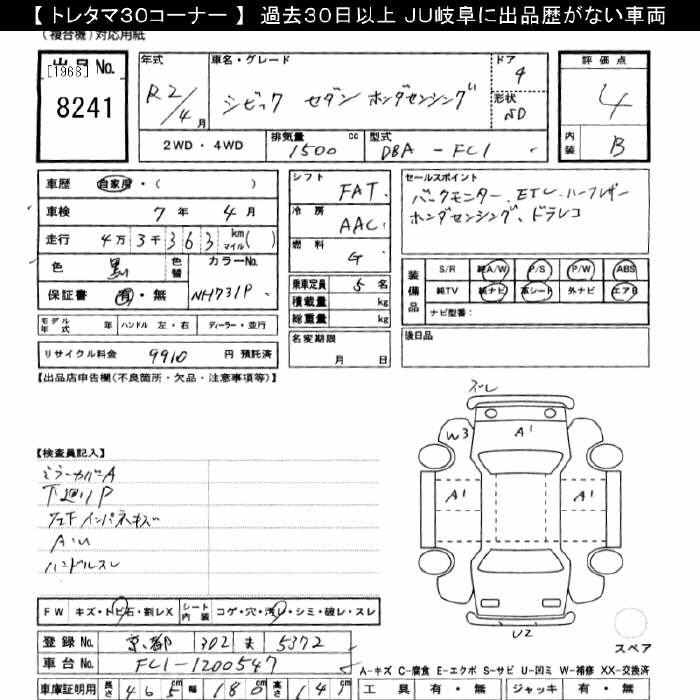 【 トレタマ30コーナー 】 過去30日以上 JU岐阜に出品歴がない車両
(複合機)対応用紙
出品No.
[1968]
8241
年式
R2/4月
車名・グレード
シビック セダン ホンダセンシング
ドア
4
形状
SD
評価点
4
内装
B
2WD・4WD
排気量
1500 cc
型式
DBA - FC1
車歴 自家用・( )
車検 7年 4月
走行 4万 3千 363 km マイル( )
色 黒 色替 カラーNo.
保証書 有・無 NH731P
モデル年式 年 ハンドル 左・右 ディーラー・並行
リサイクル料金 9910 円 預託済
シフト FAT
冷房 AAC
燃料 G
乗車定員 5 名
積載量 kg
総重量 kg
名変期限
月 日
セールスポイント
バックモニター、ETC、ハーフレザー
ホンダセンシング、ドラレコ
装備品
S/R 純A/W P/S P/W ABS
純TV 純ナビ 革シート 外ナビ エアB
ナビ型番:
後日品
【出品店申告欄(不良箇所・欠品・注意事項等)】
【検査員記入】
ミラーカバーA
下廻りP
A・U
ハンドルスレ
スレ
W3
A1
A1
A1
U2
スペア
FW キズ・トビ石・割レX シート内装 コゲ・穴・汚レ・シミ・破レ・スレ
登録No. 京都 302 ま 5372
車台No. FC1-1200547
A-キズ C-腐食 E-エクボ S-サビ U-凹ミ W-補修 XX-交換済
車庫証明用 長さ 465cm 幅 180cm 高さ 141cm
工具 有・無 ジャッキ 有・無